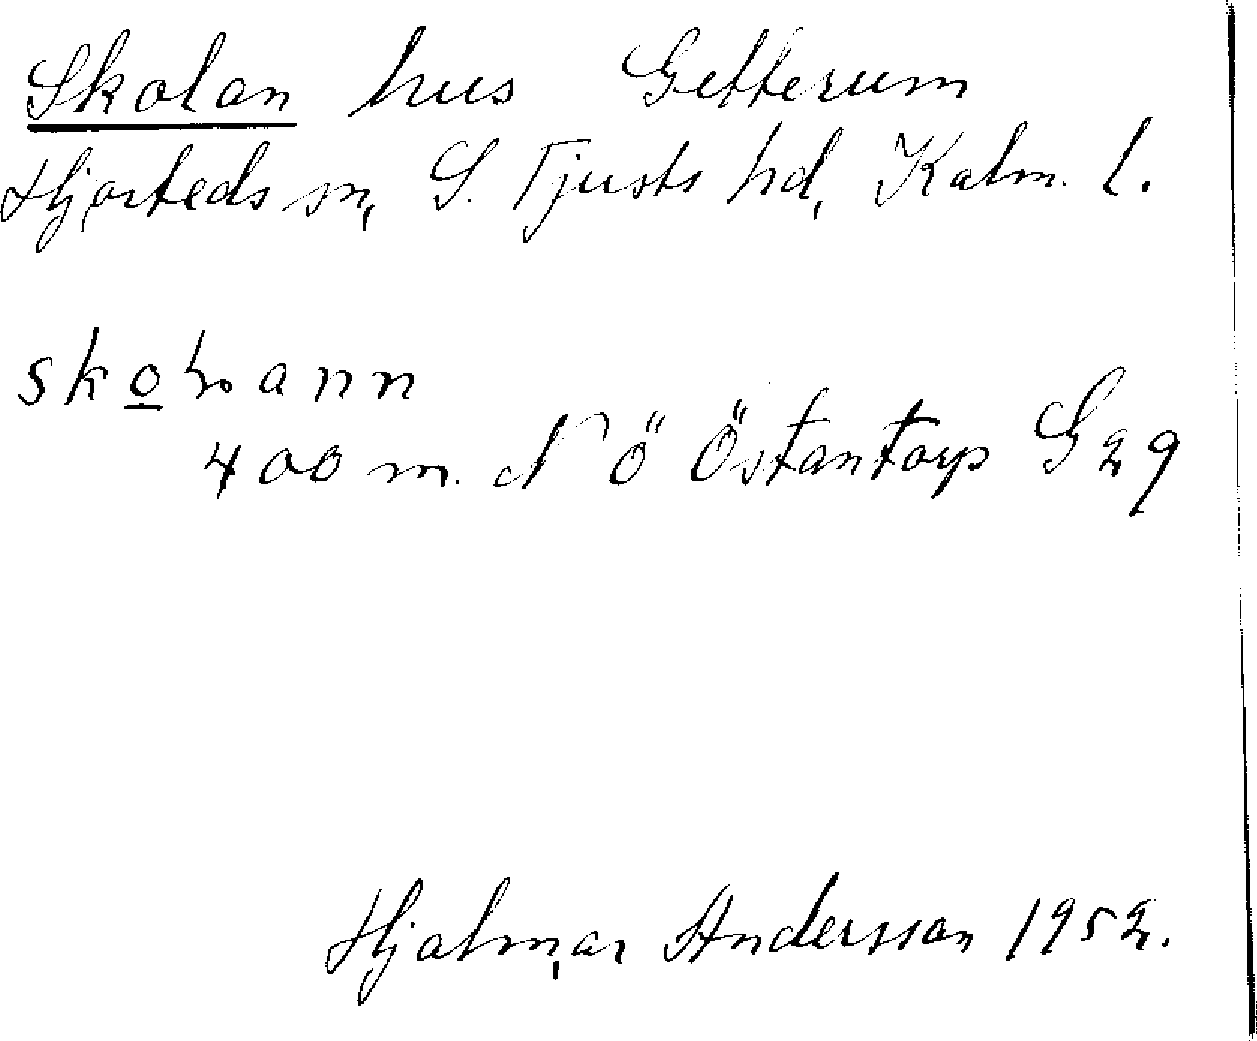 Skolan hus Getterum
Hjorteds sn, S. Tjusts hd, Kalm. l.
400 m. NÖ Östantorp G29
Hjalmar Andersson 1952.